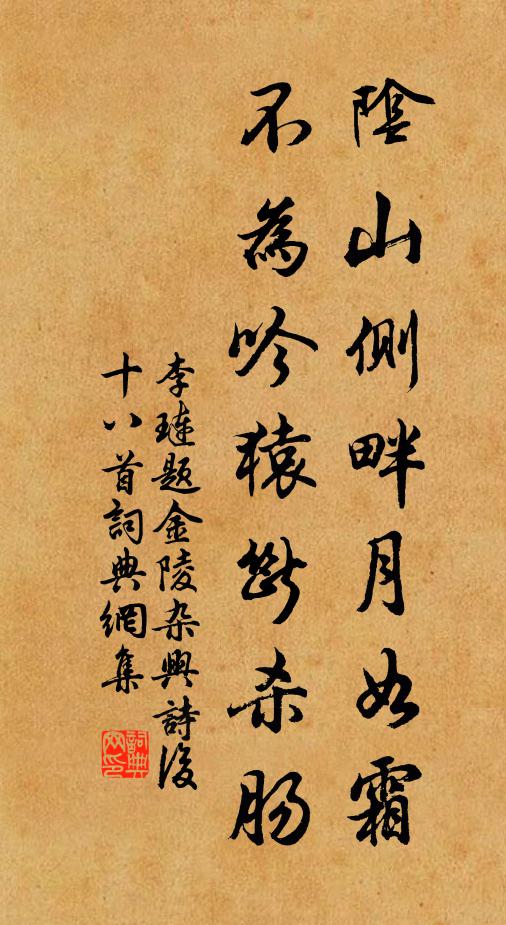 陰山側畔月如霜
不為吟猿斷殺腸
李璉題金陵杂興詩後
十八首詞典網集
詞典
网印